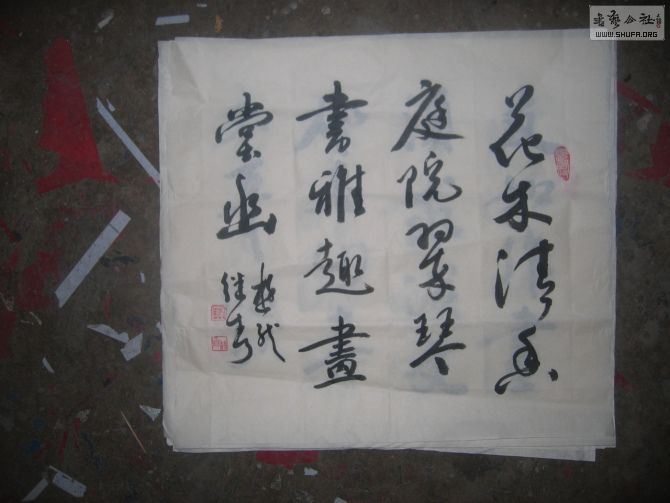 花木清香
庭院翠琴
書雅趣畫
堂幽
书艺公社
WWW.SHUFA.ORG